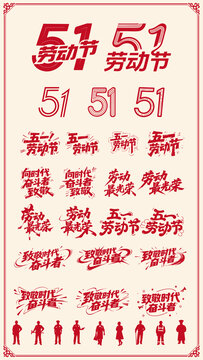 51 51
劳动节 劳动节
51 51 51
五一 五一 五一 五一
劳动节 劳动节 劳动节 劳动节
向时代 向时代 劳动 劳动
奋斗者 奋斗者 最光荣 最光荣
致敬 致敬
劳动 劳动 五一 五一
最光荣 最光荣 劳动节 劳动节
致敬时代 致敬时代 致敬时代
奋斗者 奋斗者 奋斗者
致敬时代 致敬时代 致敬时代
奋斗者 奋斗者 奋斗者